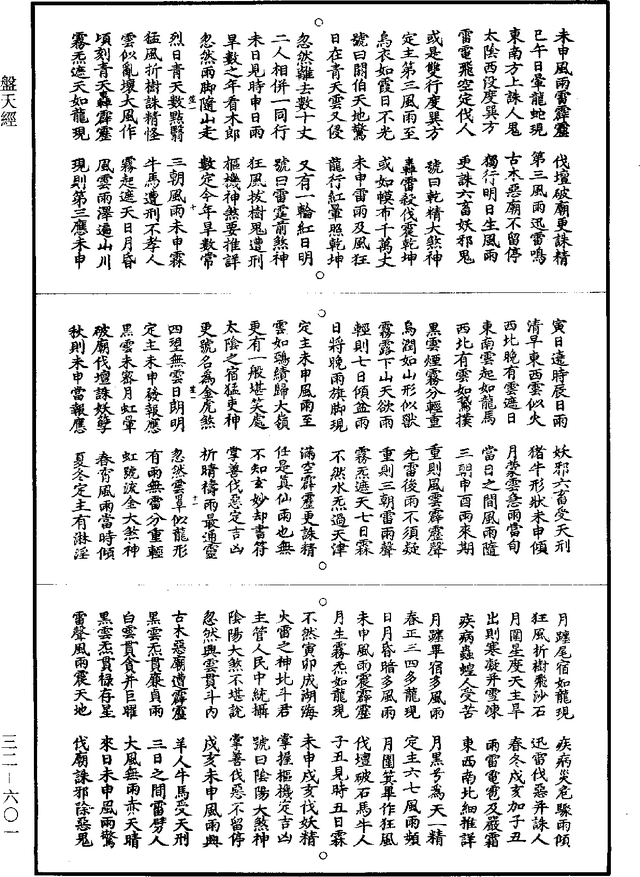 未申風雨雷霹靂 伐壇破廟更誅精
巳午日暈龍蛇現 第三風雨迅雷鳴
東南方上誅人鬼 古木惡廟不留停
太陰西段度巽方 獨行明日生風雨
雷電飛空定伐人 更誅六畜妖邪鬼
或是雙行度巽方 號曰乾精大煞神
定主第三風雨至 轟雷殺伐震乾坤
烏衣如霞日不光 或如幔布千萬丈
號曰關伯天地驚 未申雷雨及風狂
日在青天雲又侵 龍行紅暈照乾坤
忽然離去數十丈 又有一輪紅日明
二人相併一同行 號曰雷霆前煞神
未日見時申日雨 狂風拔樹鬼遭刑
旱數之年看木郎 樞機神煞要推詳
忽然雨脚隨山走 數定今年旱數常
十
烈日青天數點翳 三朝風雨未申霖
猛風折樹誅精怪 牛馬遭刑不孝人
雲似亂壞大風作 霧起遮天日月昏
頃刻青天轟霹靂 風雲雨澤遍山川
霧炁遮天如龍現 現則第三應未申
寅日達時辰日雨 妖邪六畜受天刑
清早東西雲似火 猪牛形狀未申傾
西北晚有雲遮日 月蒙雲急雨當旬
東南雲起如龍馬 當日之間風雨隨
西北有雲如鵞撲 三朝申酉雨來期
黑雲煙霧分輕重 重則風雲霹靂聲
烏潤如山形似獸 先雷後雨不須疑
霧露下山天欲雨 重則三朝雷雨聲
輕則七日傾盆雨 霧炁遮天七日霖
日將晚雨旗脚現 不然水炁過天津
定主未申風雨至 滿空霹靂更誅精
雲如鷄績歸大嶺 任是真仙雨也無
更有一般堪笑處 不知玄妙却書符
太陰之宿猛吏神 掌善伐惡定吉凶
更號名為金虎煞 祈晴禱雨最通靈
十一
四望無雲日朗明 忽然雲單似龍形
定主未申發報應 有雨無雷分重輕
黑雲未密月虹暈 虹號流金大煞神
破廟伐壇誅妖孽 春宵風雨當時傾
秋則未申當報應 夏冬定主有淋淫
月躔尾宿如龍現 疾病災危驟雨傾
狂風折樹飛沙石 迅雷伐惡并誅人
月圍星度天主旱 春冬戌亥加子丑
出則寒凝并雪凍 雨雷電雹及嚴霜
疾病蟲蝗人受苦 東西南北細推詳
月躔畢宿多風雨 月黑号為天一精
春正三四多龍現 定主六七風雨頻
日月昏暗多風雨 月圍箕畢作狂風
未申風雨震霹靂 伐壇破石馬牛人
月生霧炁如龍現 子丑見時五日霖
不然寅卯成湖海 未申戌亥伐妖精
火雷之神北斗君 掌握樞機定吉凶
主管人民中統攝 號曰陰陽大煞神
陰陽大煞不堪說 掌善伐惡不留停
忽然興雲貫斗內 戌亥未申風雨興
古木惡廟遭霹靂 羊人牛馬受天刑
黑雲炁貫廉貞雨 三日之間雷劈人
白雲貫貪并巨曜 大風無雨赤天晴
黑雲炁貫祿存星 來日未申風雨驚
雷聲風雨震天地 伐廟誅邪除惡鬼
盤天經
三二—六〇一